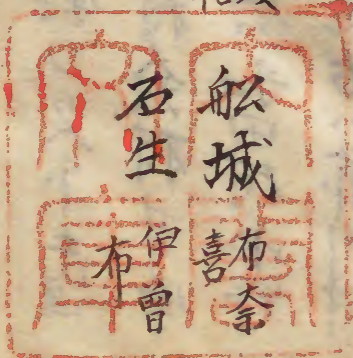 舩城
布奈
喜
石生
伊曽
布